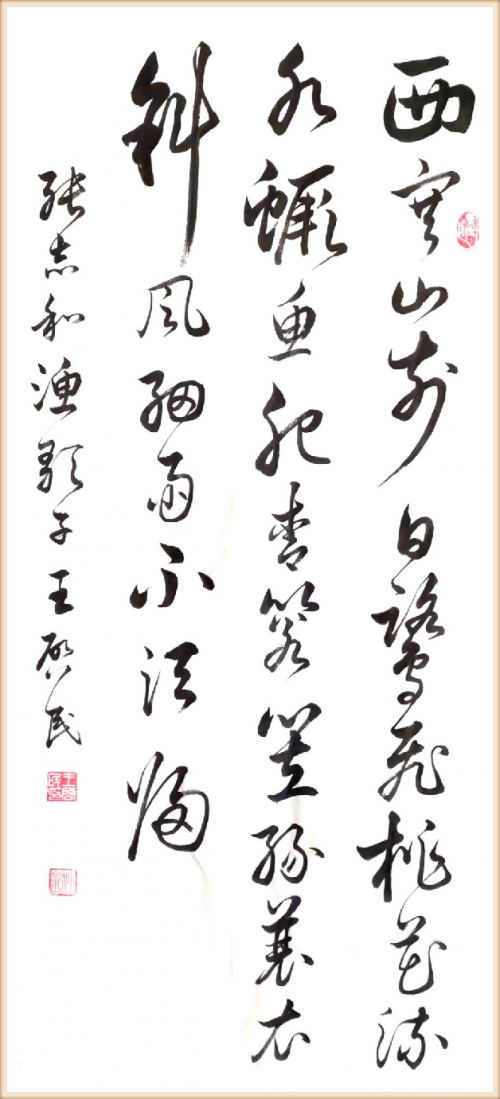 西塞山前白鹭飞桃花流
水鳜鱼肥青箬笠绿蓑衣
斜风细雨不须归
张志和渔歌子王启民
王启民印